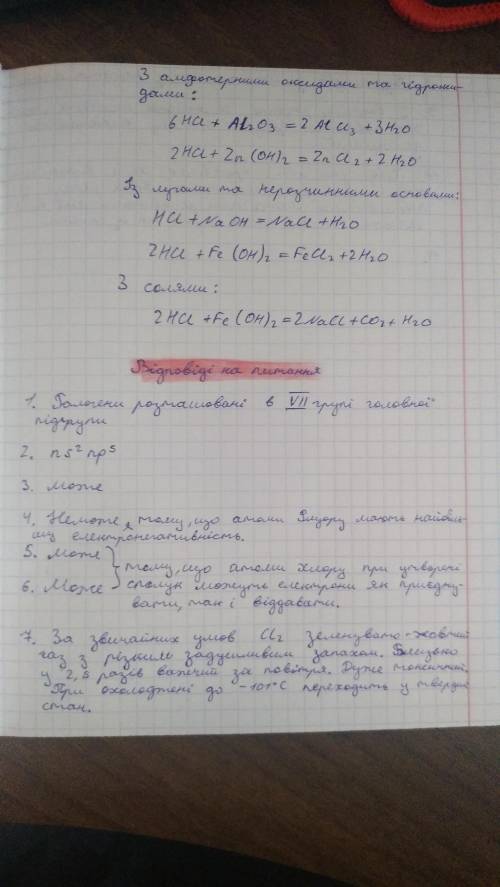 З амфотерними оксидами та гідрокси-
дами:
6HCl + Al2O3 = 2AlCl3 + 3H2O
2HCl + Zn(OH)2 = ZnCl2 + 2H2O
Із лугами та нерозчинними основами:
HCl + NaOH = NaCl + H2O
2HCl + Fe(OH)2 = FeCl2 + 2H2O
З солями:
2HCl + Fe(OH)2 = 2NaCl + CO2 + H2O
Відповіді на питання
1. Галогени розташовані в VII групі головної
підгрупи
2. ns² np⁵
3. Може
4. Неможе, тому, що атоми Флуору мають найбіль-
шу електронегативність.
5. Може
6. Може
тому, що атоми хлору при утворені
сполук можуть електрони як приєдну-
вати, так і віддавати.
7. За звичайних умов Cl2 зеленувато-жовтий
газ з різким задушливим запахом. Близько
у 2,5 разів важчий за повітря. Дуже токсичний.
При охолоджені до -101°C переходить у твердий
стан.